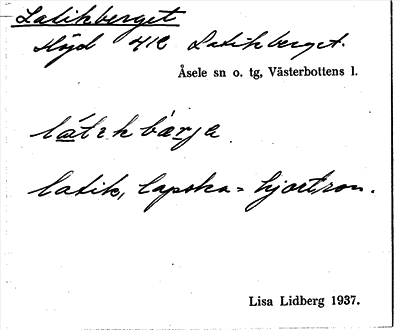 Latikberget
Höjd 412 Latikberget.
Åsele sn o. tg, Västerbottens l.
látikbärje
latik, lapska = hjortron.
Lisa Lidberg 1937.